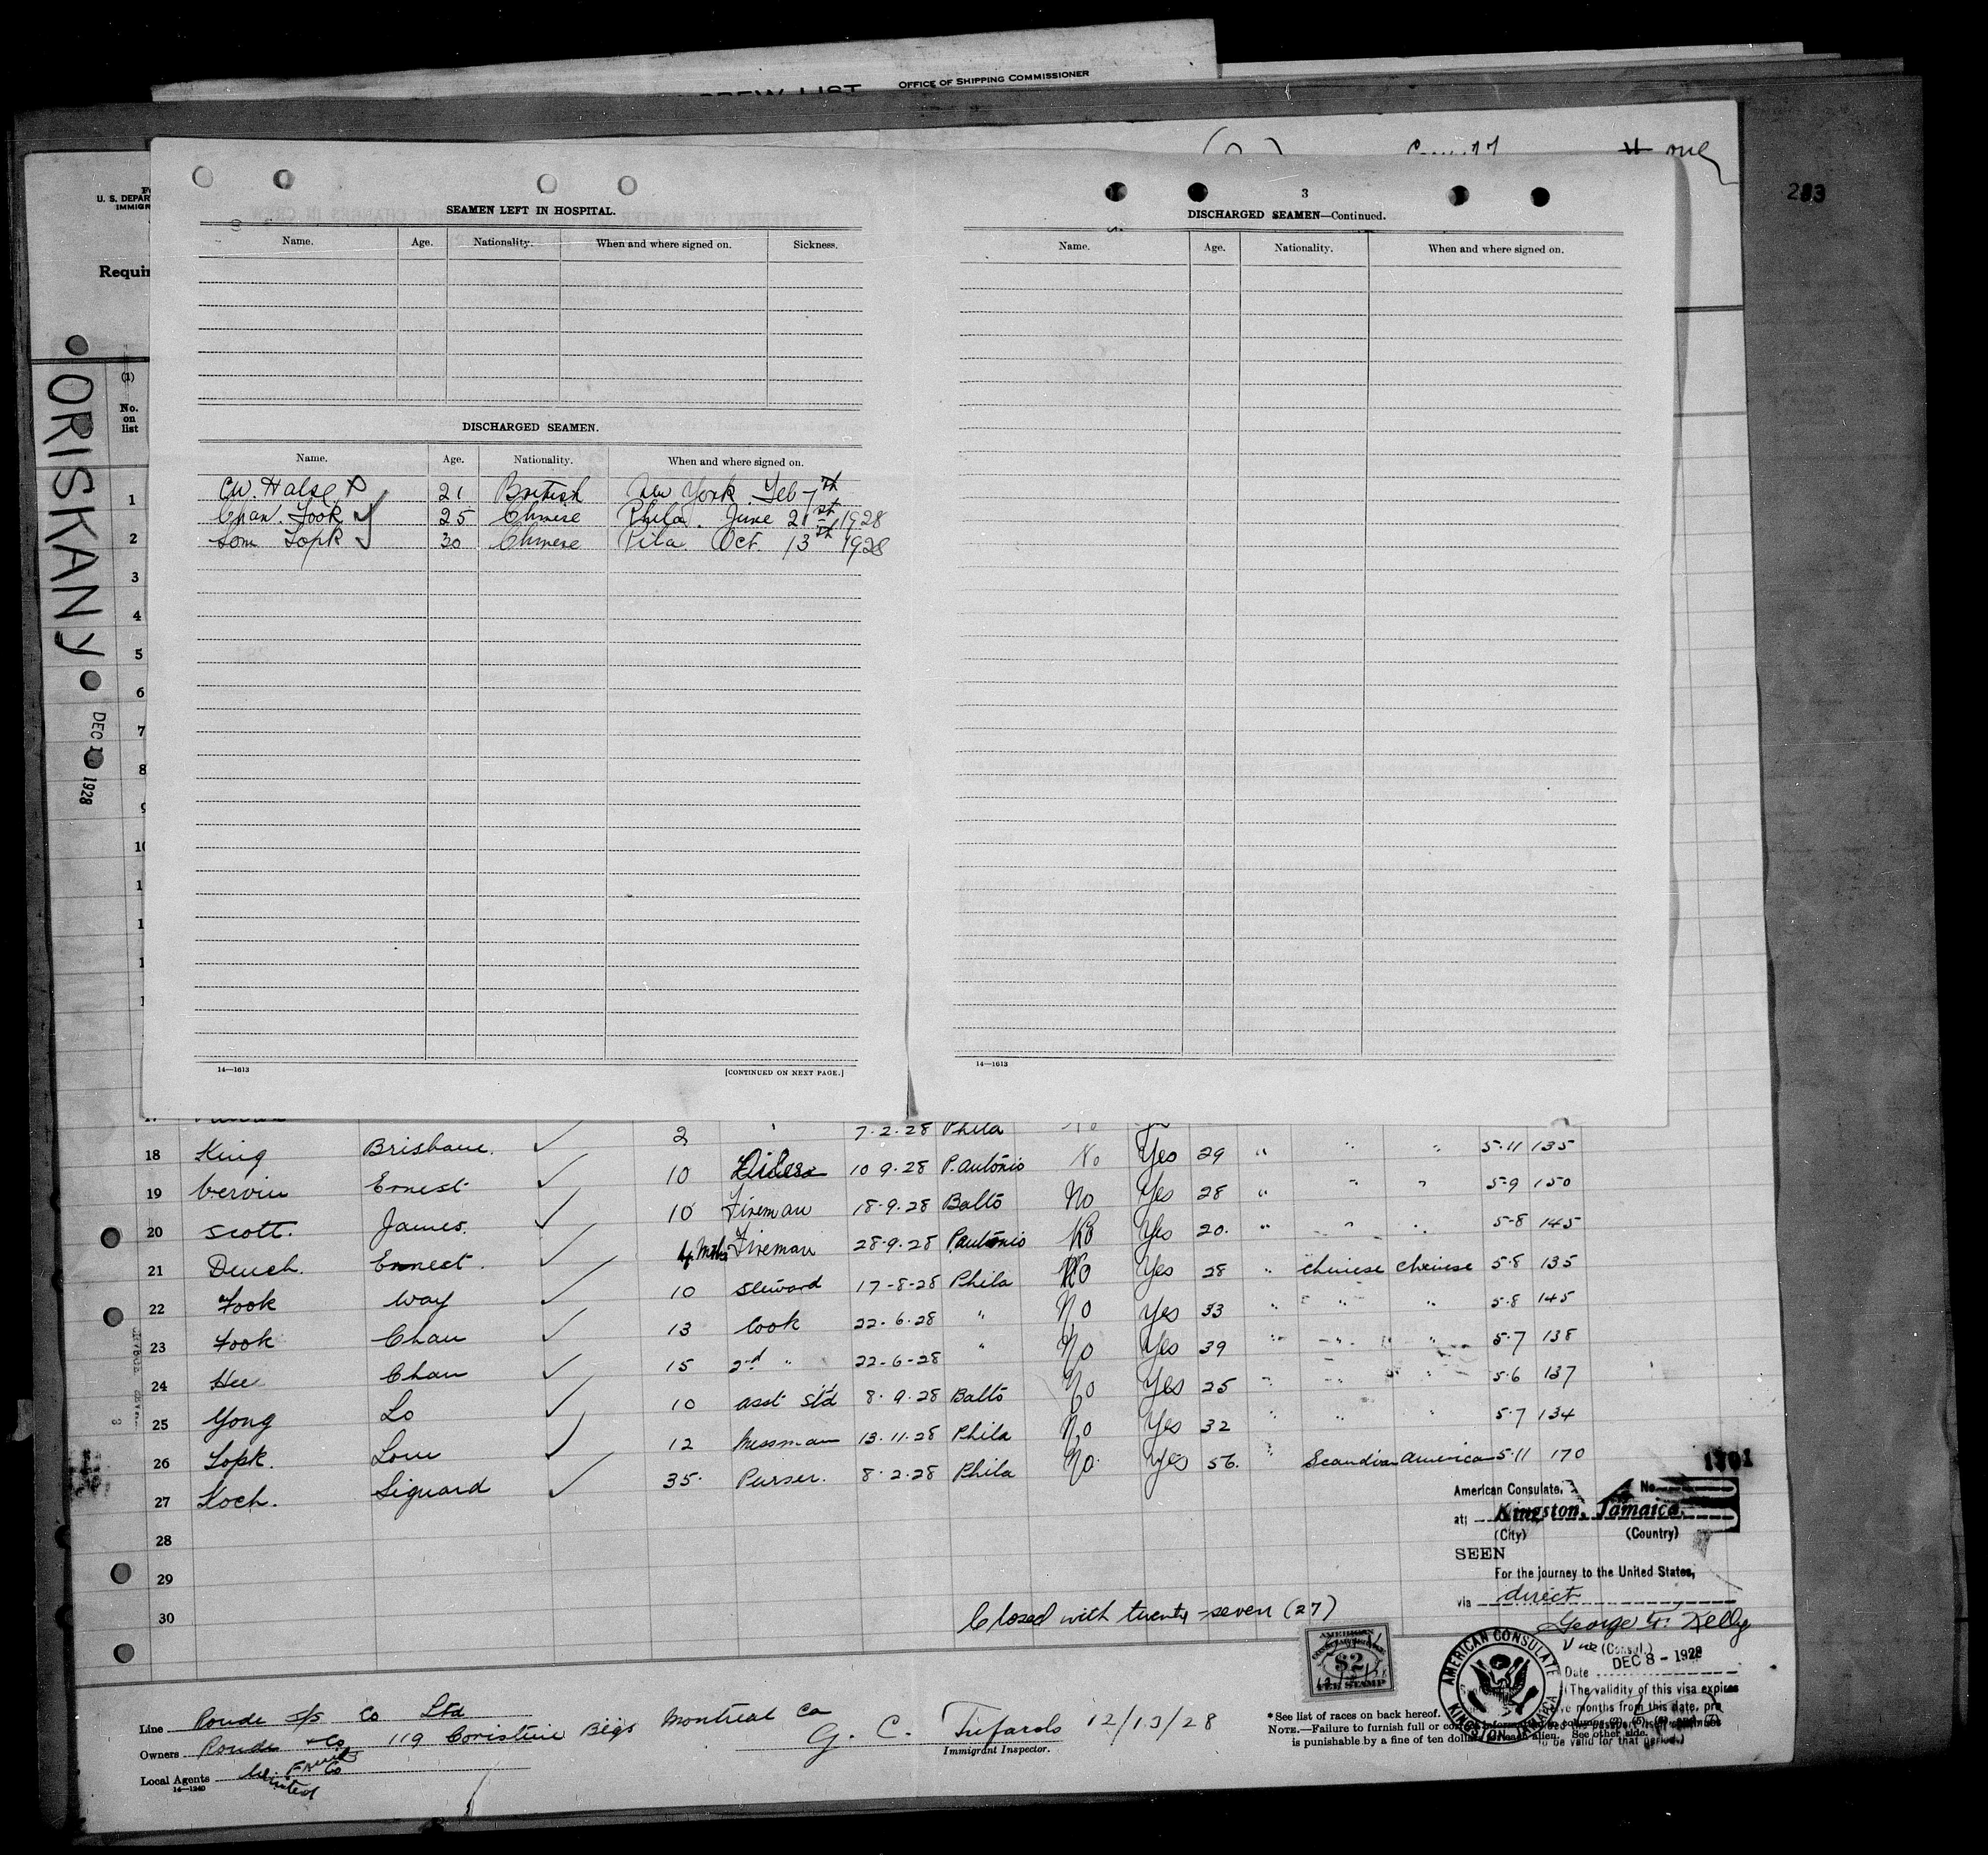 OFFICE OF SHIPPING COMMISSIONER
CREW LIST
one
U. S. DEPAR
IMMIGR
Requir
283
ORISKANY
DEC 1 1928
(1)
No.
on
list
SEAMEN LEFT IN HOSPITAL.
Name. Age. Nationality. When and where signed on. Sickness.
DISCHARGED SEAMEN.
Name. Age. Nationality. When and where signed on.
CW. Halse 21 British New York Feb 7th
Chan. Fook 25 Chinese Phila. June 21st 1928
Lom Lopk 30 Chinese Pila Oct. 13th 1928
14—1613 [CONTINUED ON NEXT PAGE.]
3
DISCHARGED SEAMEN—Continued.
Name. Age. Nationality. When and where signed on.
14—1613
1
2
3
4
5
6
7
8
9
10
1
1
1
1
18 King Brisbane. ✓ 2 " 7.2.28 Phila No Yes 29 " " " 5.11 135
19 Cervin Ernest ✓ 10 10 9.28 P. Antonio No Yes 28 " " " 5-9 150
20 Scott. James. ✓ 10 Fireman 18.9.28 Balto No Yes 20. " " " 5-8 145
21 Deuch. Ernest. ✓ 4 Mths Fireman 28.9.28 P. antonio No Yes 28 " Chinese Chinese 5.8 135
22 Fook Way ✓ 10 Steward 17-8-28 Phila No Yes 33 " " " 5.8 145
23 Fook Chan ✓ 13 Cook 22.6.28 " No Yes 39 " " " 5.7 138
24 Hee Chan ✓ 15 2nd " 22-6-28 " No Yes 25 " " " 5.6 137
25 Yong Lo ✓ 10 asst Std 8.9.28 Balto No Yes 32 " " " 5.7 134
26 Lopk. Lom ✓ 12 Messman 13.11.28 Phila No. Yes 56. " Scandian America 5.11 170
27 Koch. Siguard ✓ 35. Purser. 8.2.28 Phila
28
29
30
Closed with twenty-seven (27)
1701
American Consulate, No
at: Kingston, Jamaica
(City) (Country)
SEEN
For the journey to the United States,
via direct
George W. Kelly
Vice (Consul.)
Date DEC 8 - 1928
(The validity of this visa expires
months from this date, pro
to be valid for that period.)
AMERICAN CONSULATE
KINGSTON, JAMAICA
AMERICAN
$2
FEE STAMP
Line Ronde S/S Co Ltd
Owners Ronde & Co 119 Coristine Blgs Montreal Ca
Local Agents United Fruit Co
14—1240
G. C. Tufarolo 12/13/28
Immigrant Inspector.
* See list of races on back hereof.
NOTE.—Failure to furnish full or
is punishable by a fine of ten dollars alien. See other side.